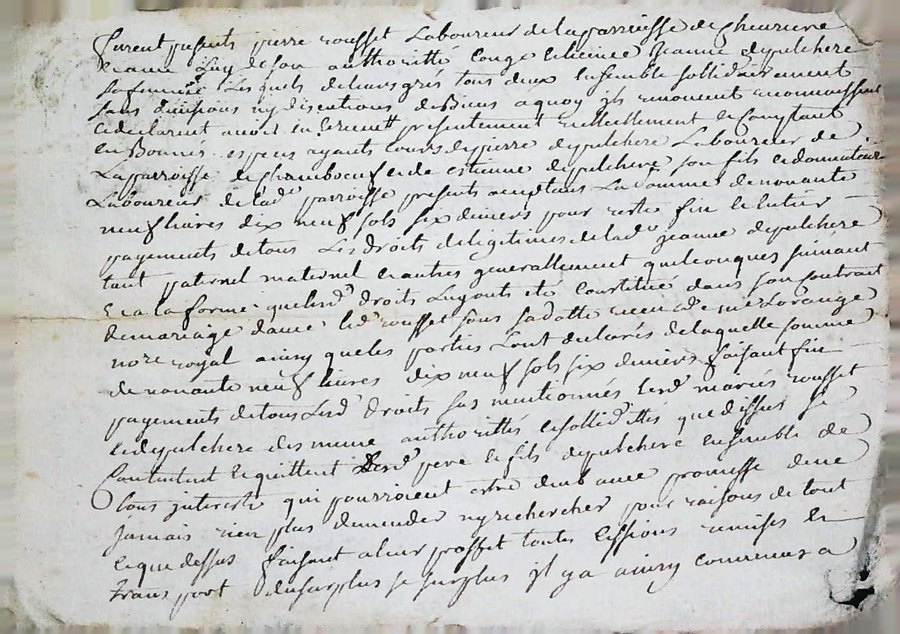 furent presents pierre rousset Laboureur de la parroisse de cheuriere
Et avec luy de son authoritté Conge et licence Jeanne depulchere
sa femme Lesquels de leurs grés tous deux Ensemble sollidairement
sans divisions ny discutions de Biens a quoy ils renoncent reconnoissent
et declarent avoir en presentement reellement et Comptant
en Bonnes especes ayants Cours de pierre depulchere Laboureur de
La parroisse de chamboeuf et de estienne depulchere son fils et donnataire
Laboureur de lad parroisse presents acceptans La somme de nonante
neuf livres dix neuf sols six deniers pour reste fin et entier
payements de tous Les droits de legitimes de lad Jeanne depulchere
tant paternel maternel et autres generallement quelconques suivant
Et a la forme que lesd droits Luy ont eté Constitué dans son Contrait
de mariage avec led rousset sous sa datte receu de me
nore royal ainsy que les parties L'ont declarés de laquelle somme
de nonante neuf livres dix neuf sols six deniers faisant fin
payements de tous Lesd droits sus mentionnés, lesd mariés rousset
et depulchere des meme authorittés et sollidittés que dessus se
Contentent et quittent Lesd pere et fils depulchere Ensemble de
tous interests qui pourroient estre deub avec promesse de ne
Jamais rien plus demender ny rechercher pour raisons de tout
ce que dessus faisant a leur proffit toutes Cessions remises et
transport du surplus sy surplus il y a ainsy convenues a